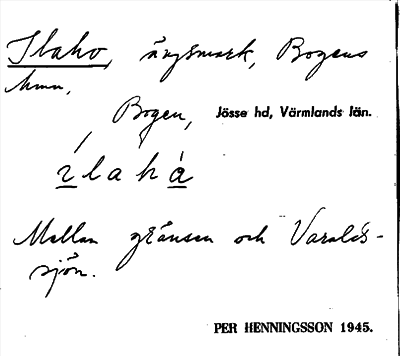 Ilaho, ängsmark, Bogens
hmn,
Bogen, Jösse hd, Värmlands län.
ílahà
Mellan gränsen och Varalds-
sjön.
PER HENNINGSSON 1945.